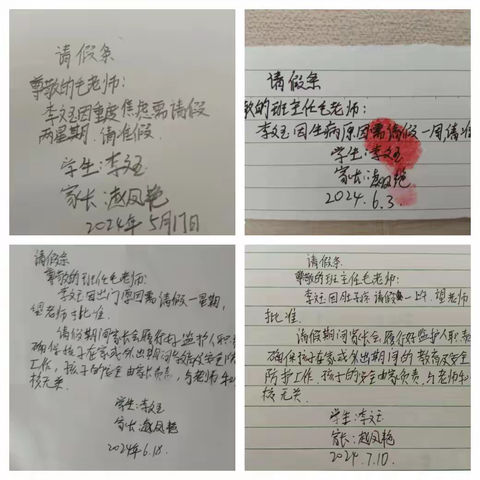 请假条
尊敬的毛老师：
李文玉因重度焦虑需请假
两星期，请准假。
学生：李文玉
家长：赵凤艳
2024年5月17日
请假条
敬的班主任毛老师：
李文玉因生病原因需请假一周，请准
学生：李文玉
家长：赵凤艳
2024.6.3
请假条
尊敬的班任毛老师：
李文玉因出门原因需请假一星期，
望老师批准。
请假期间家长会履行好监护人职责
确保孩子在家或外出期间的教育及安全防
工作，孩子的安全由家长负责，与老师和
校无关
学生：李文玉
家长：赵凤艳
2024年6.18.
请假条
尊敬的班主任毛老师：
李文玉因 请假 望老师
批准.
请假期间家长会履行好监护人职责
确保孩子在家或外出期间的教育及安全
防护工作，孩子的安全由家长负责，与老师和
校无关.
学生：李文玉
家长：赵凤艳
2024.7.10.